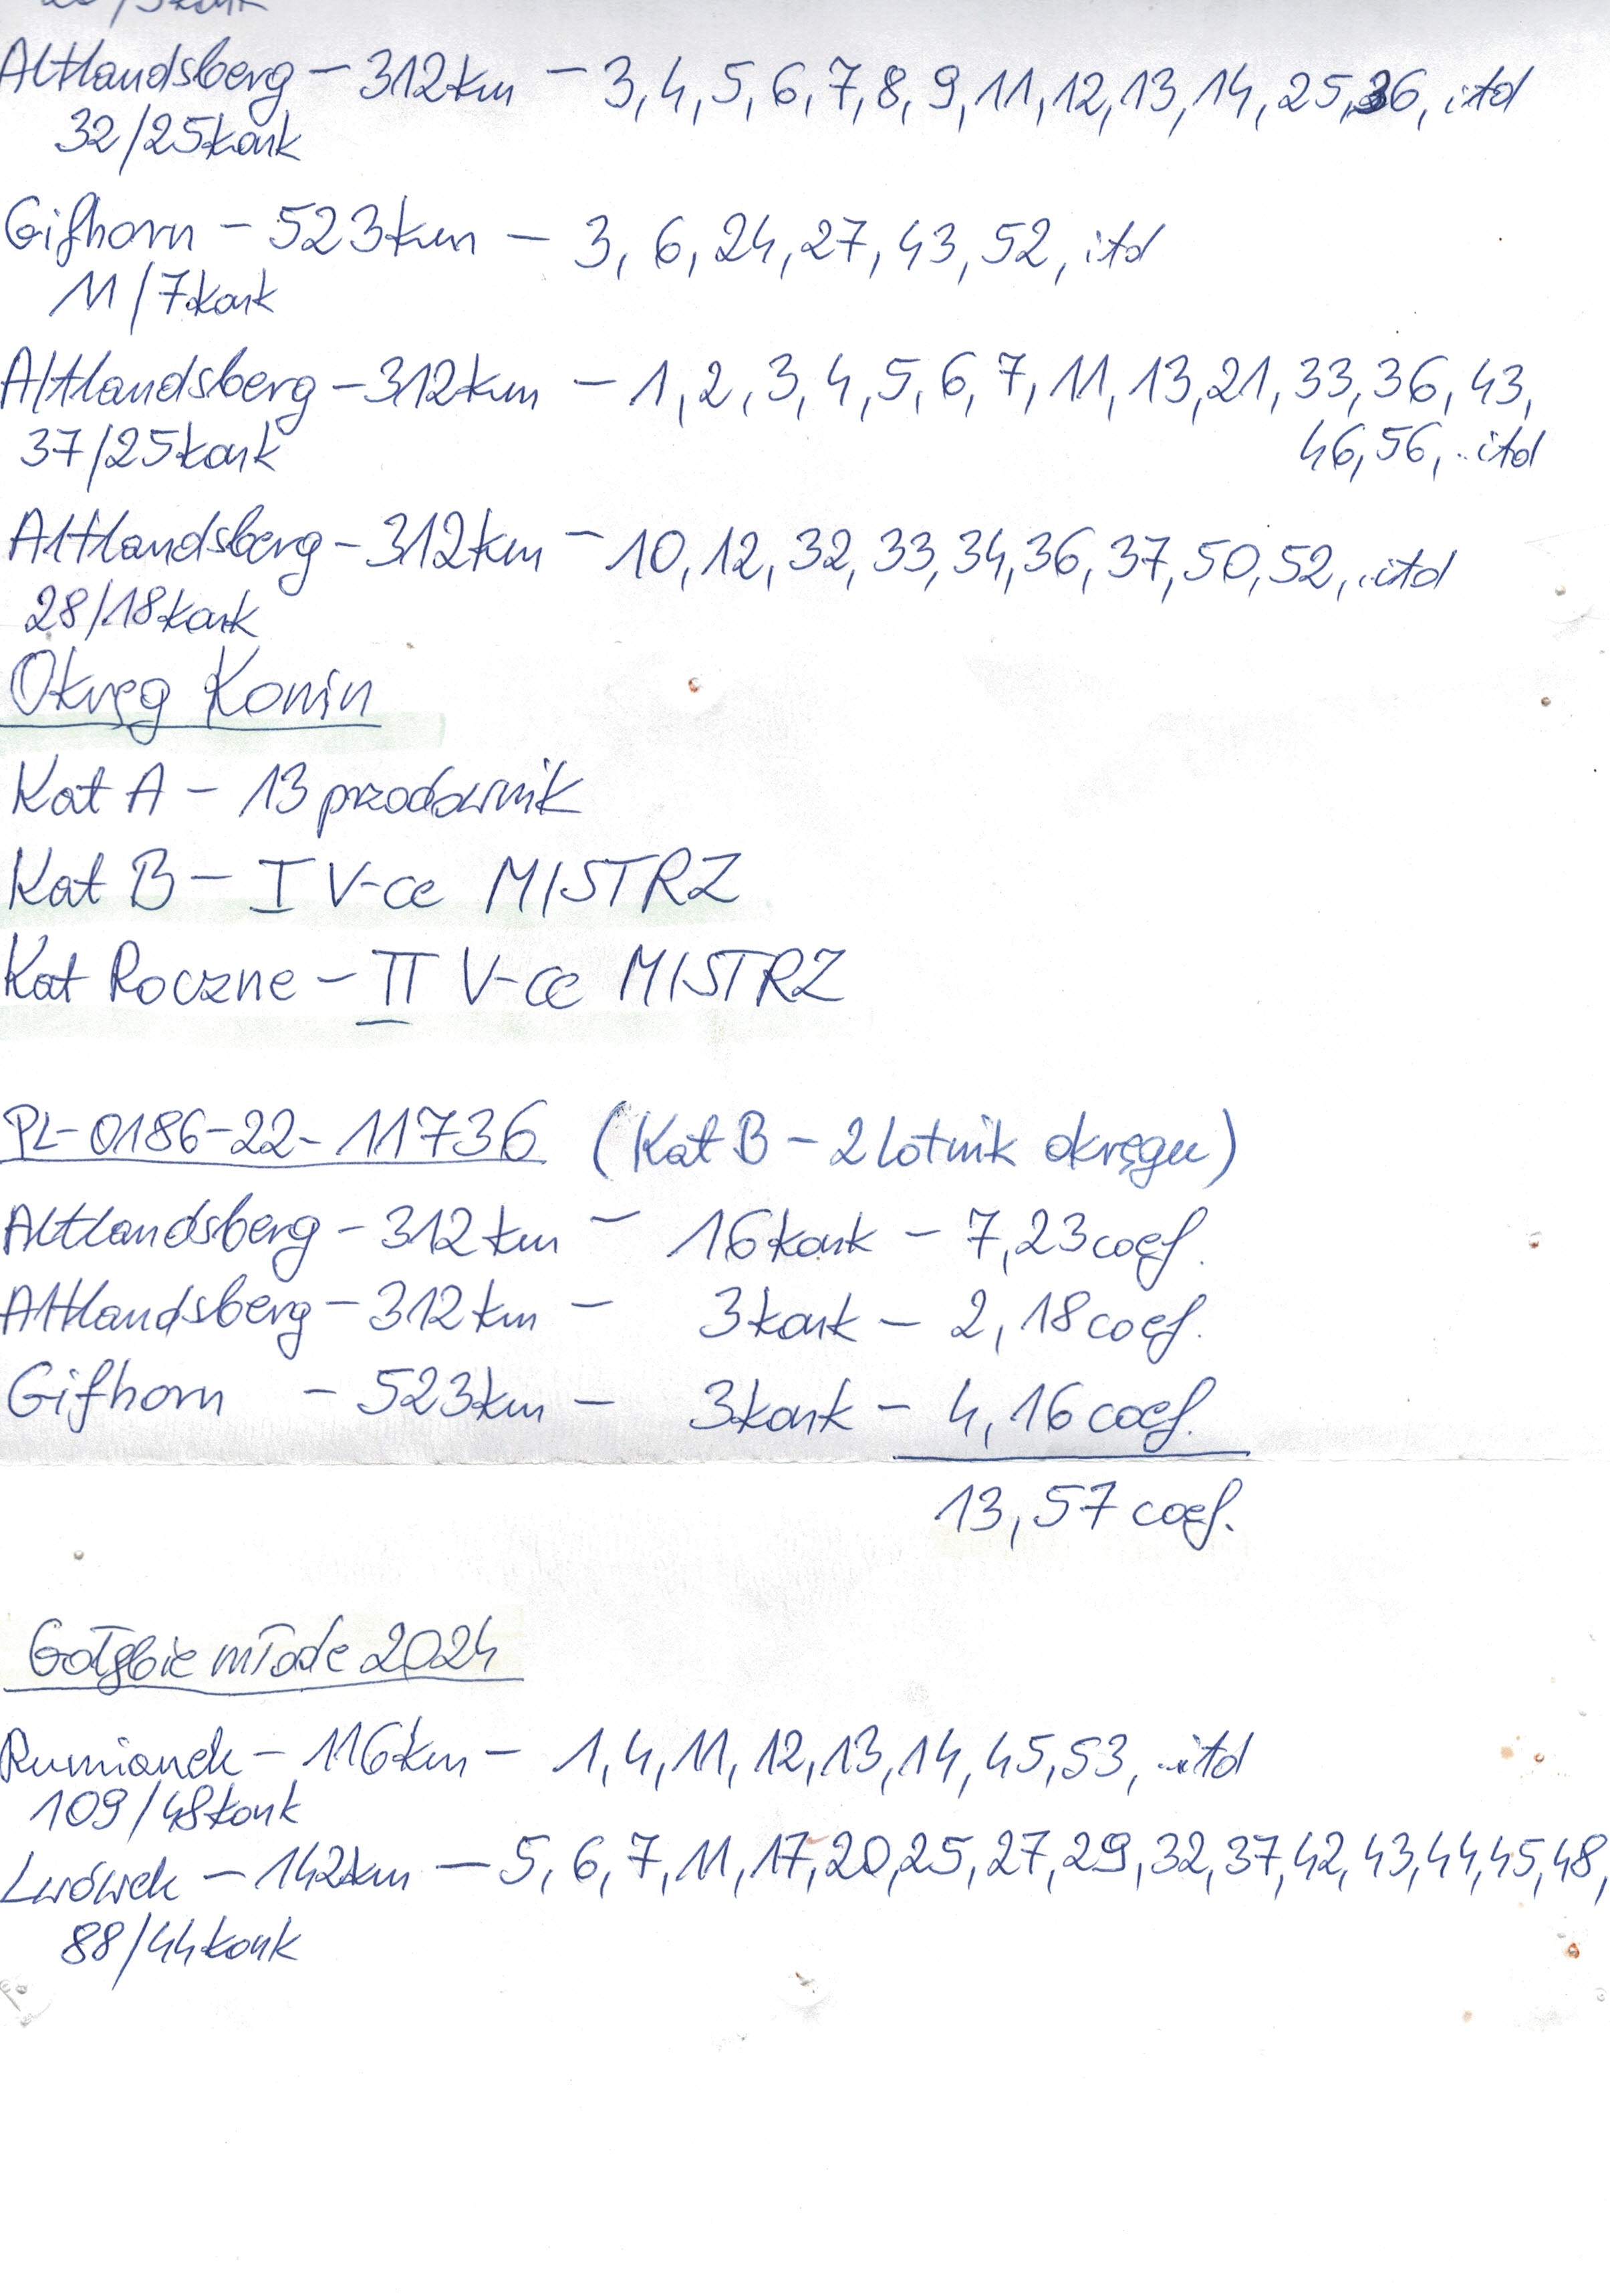 Altlandsberg – 312km – 3, 4, 5, 6, 7, 8, 9, 11, 12, 13, 14, 25, 36, itd
32/25konk
Gifhorn – 523km – 3, 6, 24, 27, 43, 52, itd
11/7konk
Altlandsberg – 312km – 1, 2, 3, 4, 5, 6, 7, 11, 13, 21, 33, 36, 43,
46, 56, ..itd
37/25konk
Altlandsberg – 312km – 10, 12, 32, 33, 34, 36, 37, 50, 52, ..itd
28/18konk
Okręg Konin
Kat A – 13 przodownik
Kat B – I V-ce MISTRZ
Kat Roczne – II V-ce MISTRZ
PL-0186-22-11736 (Kat B – 2 lotnik okręgu)
Altlandsberg – 312km – 16konk – 7,23coef.
Altlandsberg – 312km – 3konk – 2,18coef.
Gifhorn – 523km – 3konk – 4,16coef.
13,57coef.
Gołębie młode 2024
Rumianek – 116km – 1, 4, 11, 12, 13, 14, 45, 53, ..itd
109/48konk
Lwówek – 142km – 5, 6, 7, 11, 17, 20, 25, 27, 29, 32, 37, 42, 43, 44, 45, 48,
88/44konk